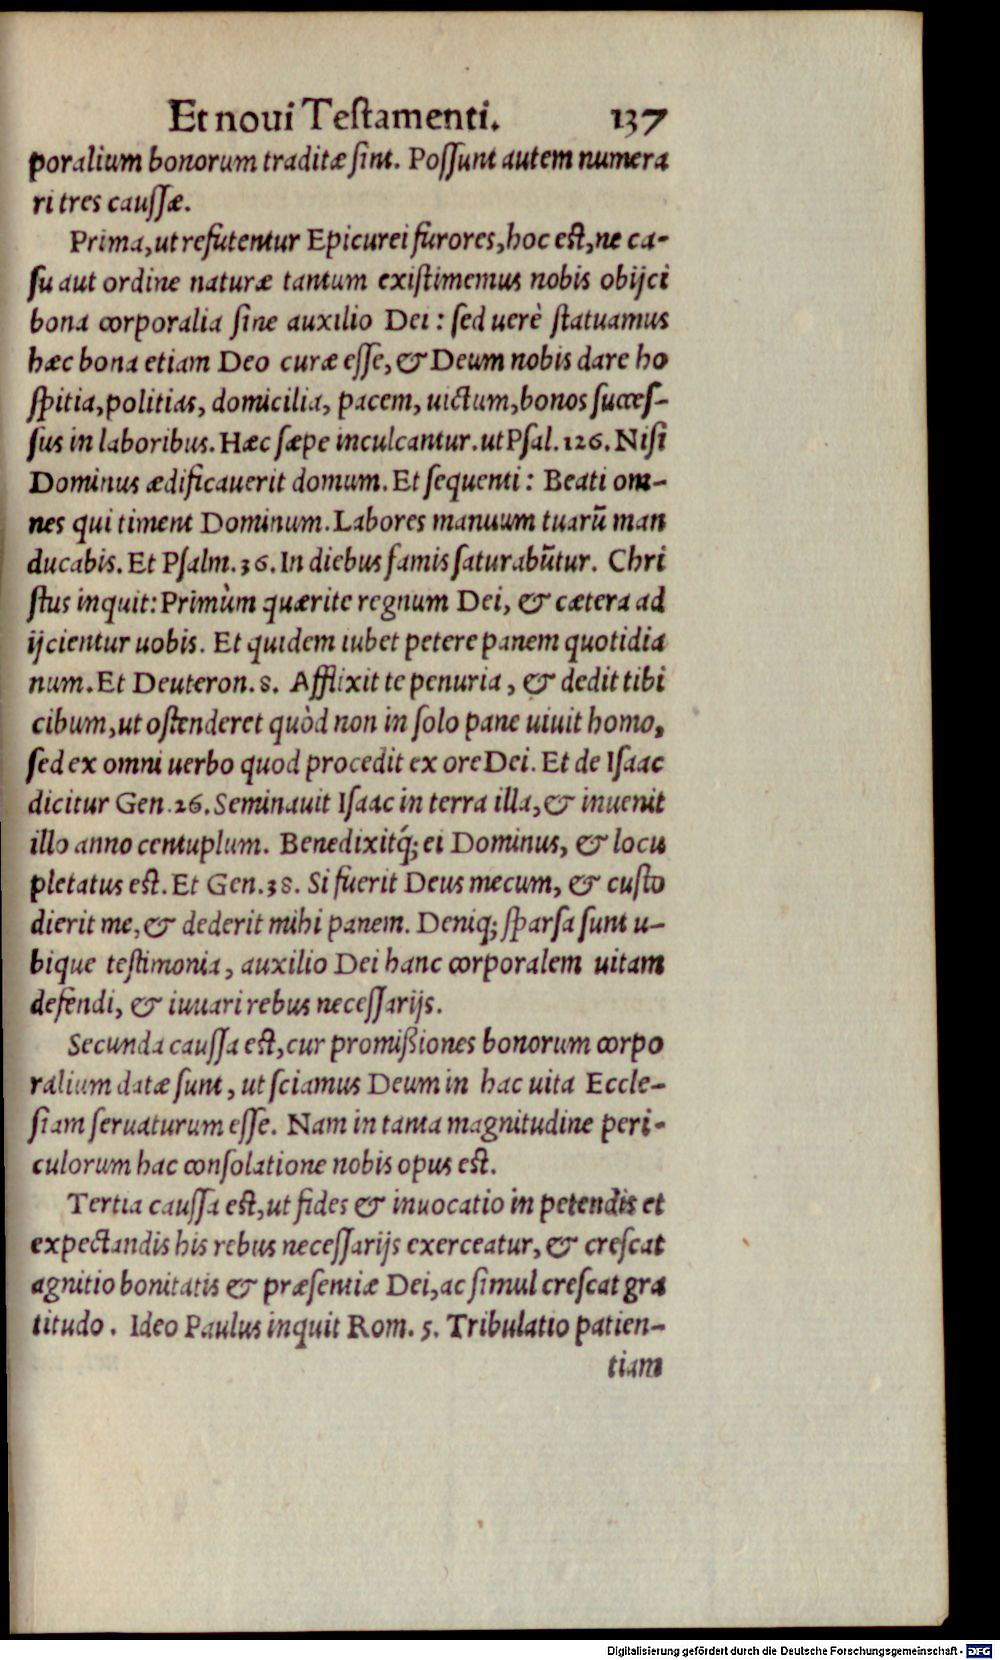 Et noui Testamenti. 137
poralium bonorum traditæ ſint. Poſſunt autem numera
ri tres cauſſæ.
Prima, ut refutentur Epicurei furores, hoc eſt, ne ca-
ſu aut ordine naturæ tantum exiſtimemus nobis obijci
bona corporalia ſine auxilio Dei: ſed uerè ſtatuamus
hæc bona etiam Deo curæ eſſe, & Deum nobis dare ho
ſpitia, politias, domicilia, pacem, uictum, bonos ſucceſ-
ſus in laboribus. Hæc ſæpe inculcantur. ut Pſal. 126. Niſi
Dominus ædificauerit domum. Et ſequenti: Beati om-
nes qui timent Dominum. Labores manuum tuarũ man
ducabis. Et Pſalm. 36. In diebus famis ſaturabũtur. Chri
ſtus inquit: Primùm quærite regnum Dei, & cætera ad
ijcientur uobis. Et quidem iubet petere panem quotidia
num. Et Deuteron. 8. Afflixit te penuria, & dedit tibi
cibum, ut oſtenderet quòd non in ſolo pane uiuit homo,
ſed ex omni uerbo quod procedit ex ore Dei. Et de Iſaac
dicitur Gen. 26. Seminauit Iſaac in terra illa, & inuenit
illo anno centuplum. Benedixitq́; ei Dominus, & locu
pletatus eſt. Et Gen. 38. Si fuerit Deus mecum, & cuſto
dierit me, & dederit mihi panem. Deniq; ſparſa ſunt u-
bique teſtimonia, auxilio Dei hanc corporalem uitam
defendi, & iuuari rebus neceſſarijs.
Secunda cauſſa eſt, cur promißiones bonorum corpo
ralium datæ ſunt, ut ſciamus Deum in hac uita Eccle-
ſiam ſeruaturum eſſe. Nam in tanta magnitudine peri-
culorum hac conſolatione nobis opus eſt.
Tertia cauſſa eſt, ut fides & inuocatio in petendis et
expectandis his rebus neceſſarijs exerceatur, & creſcat
agnitio bonitatis & præſentiæ Dei, ac ſimul creſcat gra
titudo. Ideo Paulus inquit Rom. 5. Tribulatio patien-
tiam
Digitalisierung gefördert durch die Deutsche Forschungsgemeinschaft - DFG